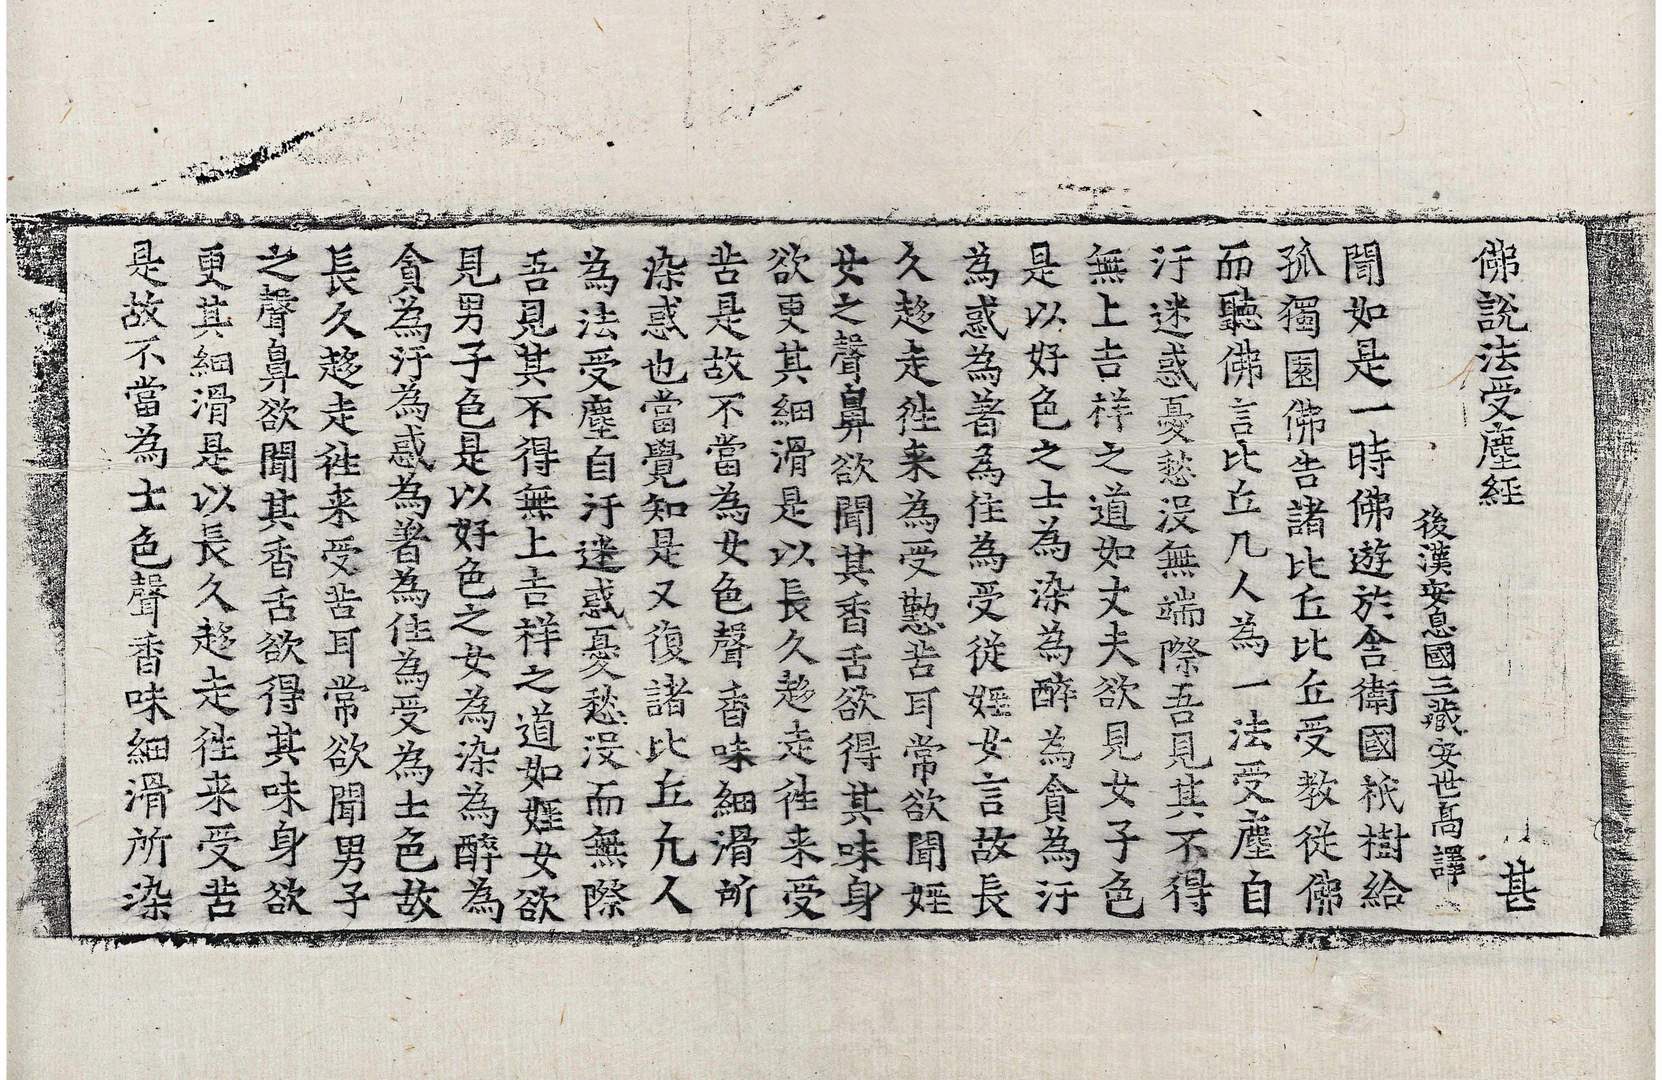 佛說法受塵經 甚
後漢安息國三藏安世高譯
聞如是一時佛遊於舎衛國祇樹給
孤獨園佛告諸比丘比丘受教從佛
而聽佛言比丘凡人為一法受塵自
汙迷惑憂愁没無端際吾見其不得
無上吉祥之道如丈夫欲見女子色
是以好色之士為染為醉為貪為汙
為惑為著為住為受從婬女言故長
久趍走徃来為受懃苦耳常欲聞婬
女之聲鼻欲聞其香舌欲得其味身
欲更其細滑是以長久趍走徃来受
苦是故不當為女色聲香味細滑所
染惑也當覺知是又復諸比丘凡人
為法受塵自汙迷惑憂愁没而無際
吾見其不得無上吉祥之道如婬女欲
見男子色是以好色之女為染為醉為
貪為汙為惑為著為住為受為士色故
長久趍走徃来受苦耳常欲聞男子
之聲鼻欲聞其香舌欲得其味身欲
更其細滑是以長久趍走徃来受苦
是故不當為士色聲香味細滑所染